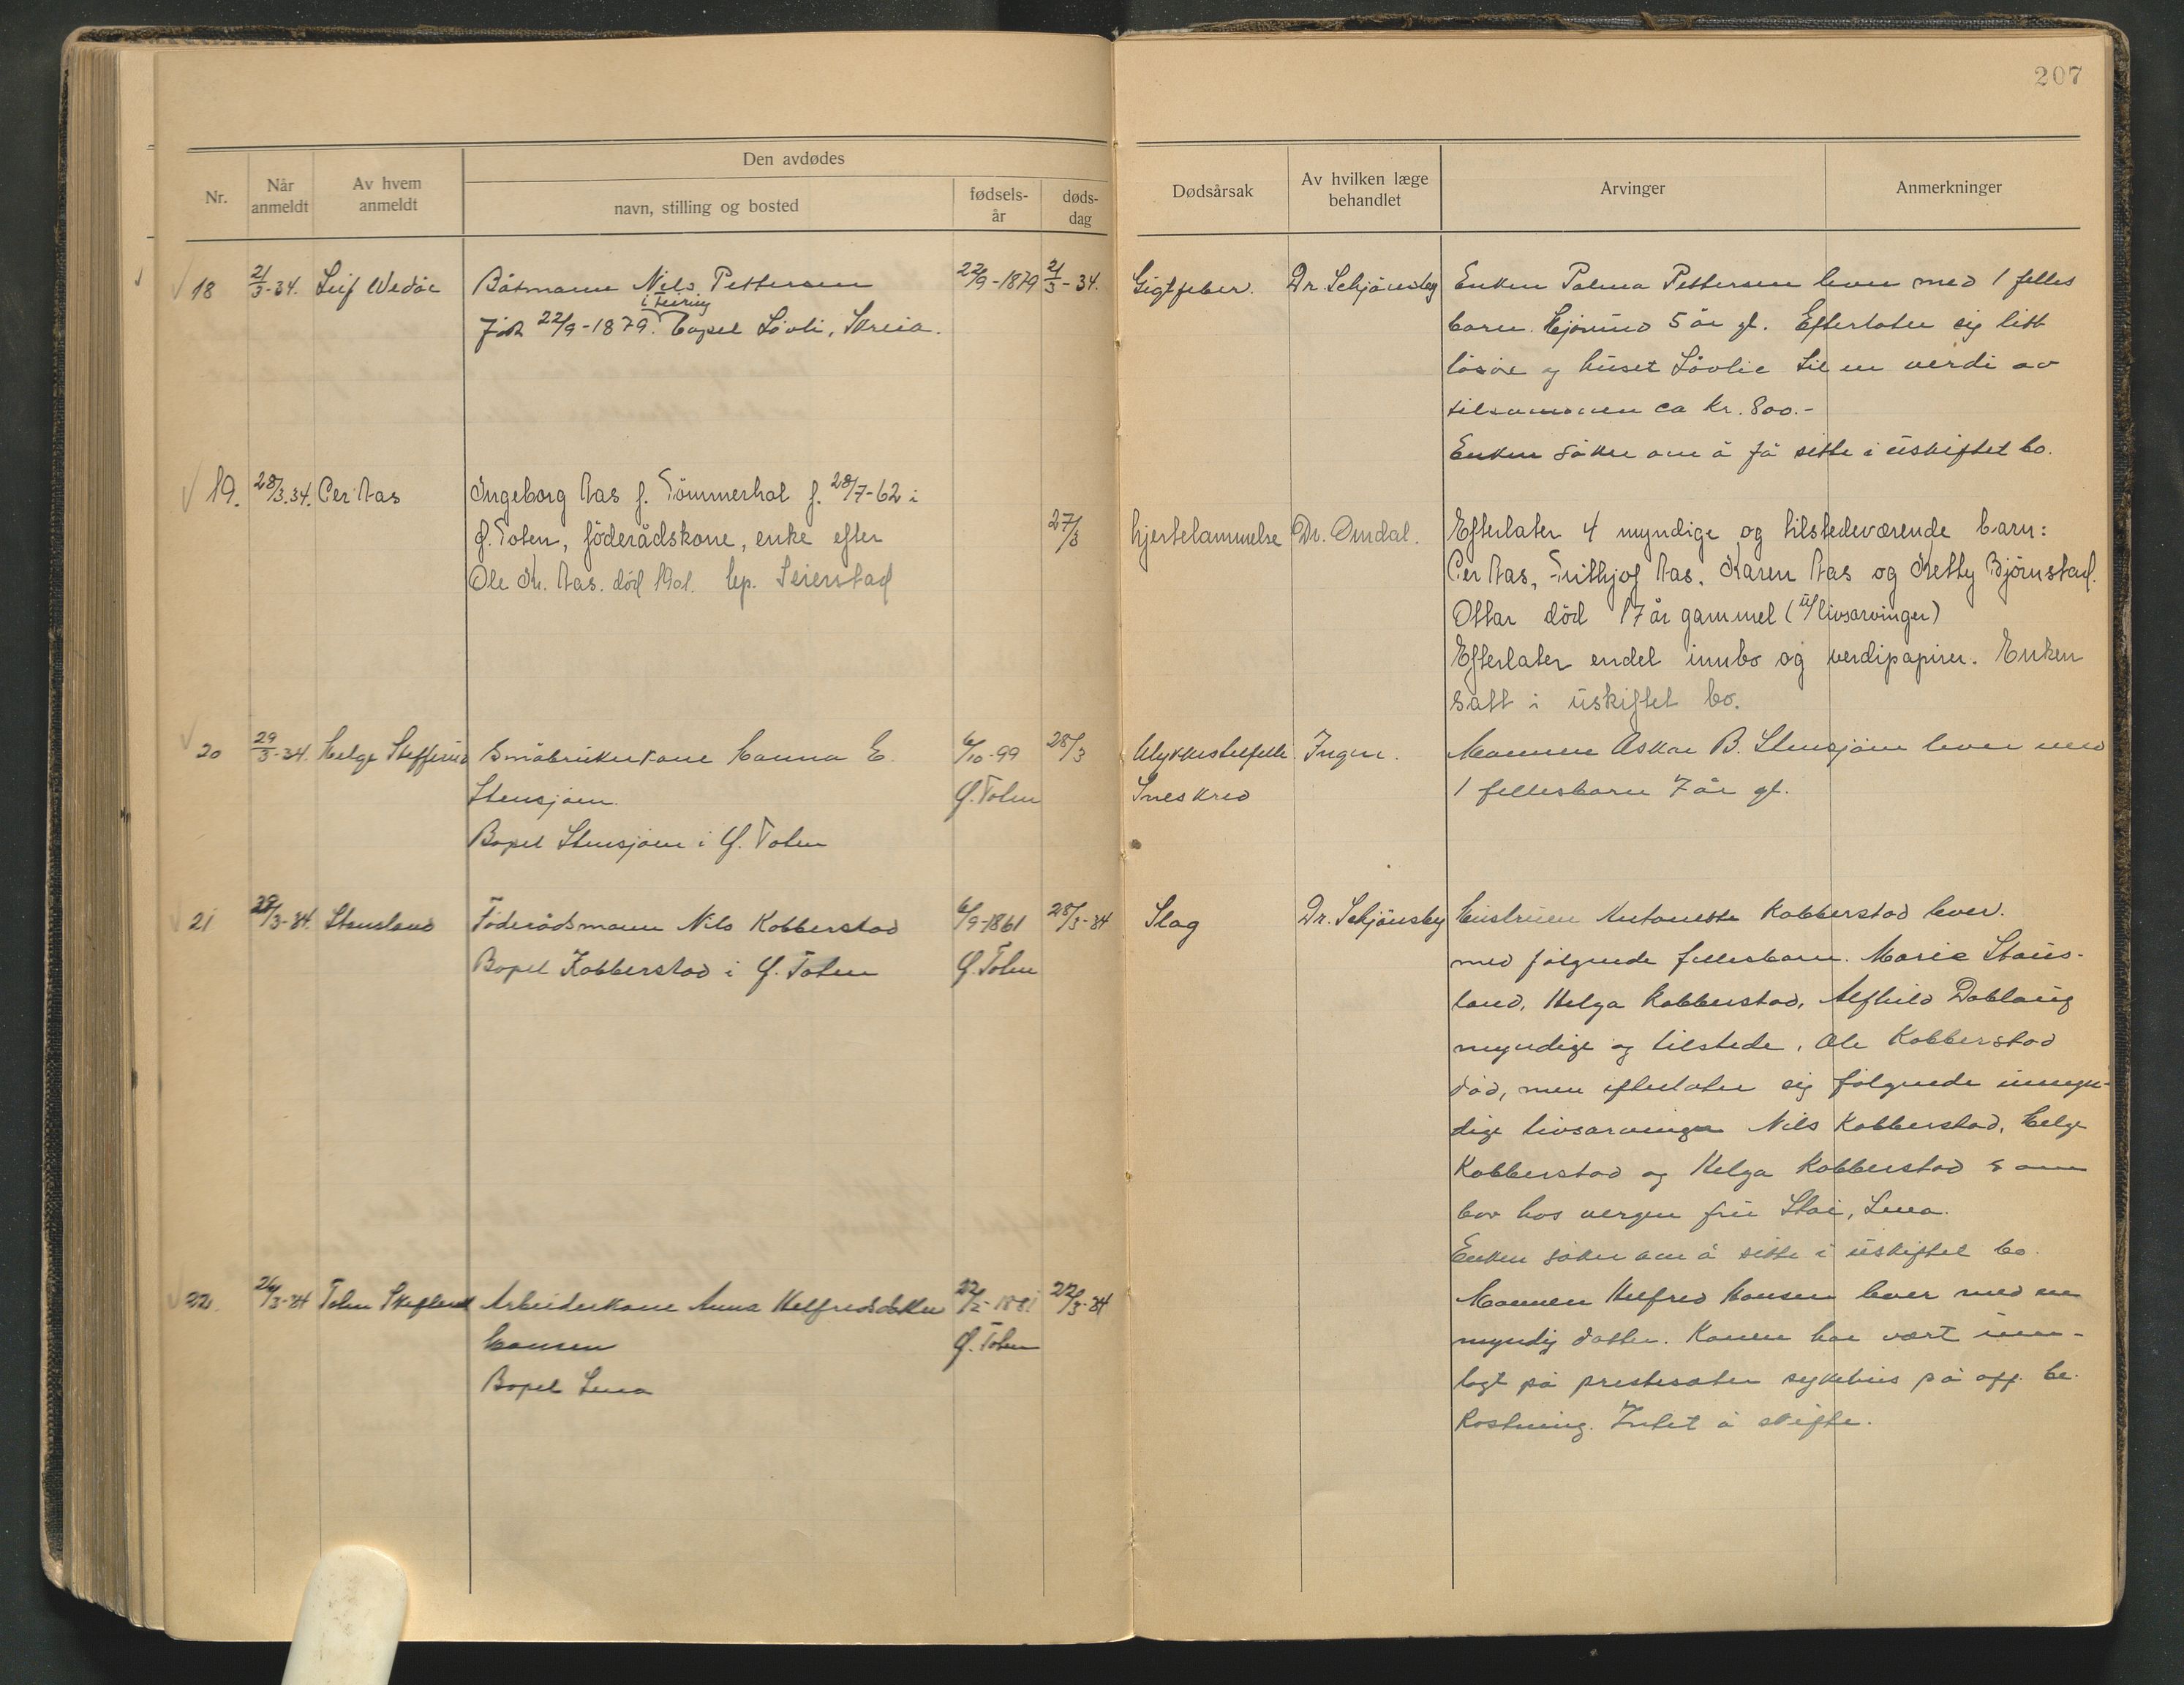 207
Den avdødes
Nr.
Når anmeldt
Av hvem anmeldt
navn, stilling og bosted
fødsels-år
døds-dag
Dødsårsak
Av hvilken læge behandlet
Arvinger
Anmerkninger
18 21/3-34. Leif Wedøe Båtmann Nils Pettersen 22/9-1879 21/3-34. Gigtfeber. Dr. Schjönsby
i Feiring
Föt 22/9-1879. bopel Lövli, Skreia.
Enken Palma Pettersen lever med 1 felles
barn. 5 år gl. Efterlater sig litt
lösöre og huset Lövlie til en verdi av
tilsammen ca kr. 800.-
Enken söker om å få sitte i uskiftet bo.
19. 28/3.34. Per Aas Ingeborg Aas f. Tömmerhol f. 28/7-62 i
Ö. Toten, föderådskone, enke efter 27/3 hjertelammelse Dr. Omdal.
Ole Kr. Aas. död 1901. bp. Seierstad
Efterlater 4 myndige og tilstedeværende barn:
Per Aas, Frithjof Aas, Karen Aas og Ketty Björnstad.
Ottar död 17 år gammel (u/livsarvinger)
Efterlater endel innbo og verdipapirer. Enken
satt i uskiftet bo.
20 29/3-34. Helge Stefferud Småbrukerkone Hanna E. 6/10-99 28/3 Ulykkestilfelle. Ingen.
Stensjøen. Ö. Toten Sneskred
Bopel Stensjøen i Ö. Toten
Mannen Oskar B. Stensjøen lever med
1 fellesbarn 7 år gl.
21 29/3-34. Stensland Föderådsmann Nils Kobberstad 6/9-1861 28/3-34 Slag Dr. Schjönsby
Bopel Kobberstad i Ö. Toten Ö. Toten
Hustruen Antonette Kobberstad lever.
med følgende fellesbarn. Marie Stens-
land, Helga Kobberstad, Alfhild Dablaug
myndige og tilstede. Ole Kobberstad
död, men efterlater sig følgende umyn-
dige livsarvinger Nils Kobberstad, Helge
Kobberstad og Helga Kobberstad som
bor hos vergen fru Stai, Lena.
Enken söker om å sitte i uskiftet bo.
22. 26/3-34 Toten Skifterett Arbeiderkone Anna Helfredsdatter 22/2-1881 22/3-34
Hansen Ö. Toten
Bopel Lena
Mannen Helfred Hansen lever med en
myndig datter. Konen har vært inn-
lagt på prestesæter sykehus på off. be-
kostning. Intet å skifte.